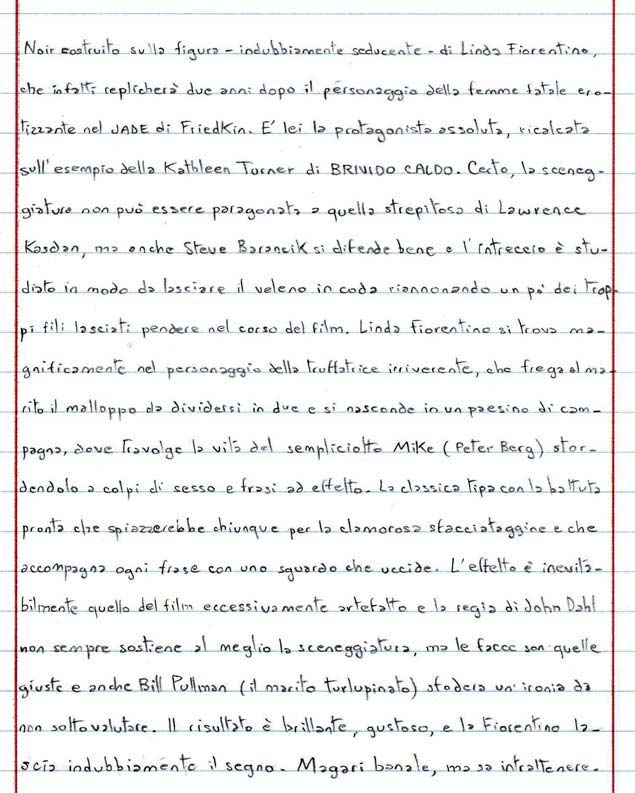 Noir costruito sulla figura - indubbiamente seducente - di Linda Fiorentino,
che infatti replicherà due anni dopo il personaggio della femme fatale ero-
tizzante nel JADE di Friedkin. E' lei la protagonista assoluta, ricalcata
sull'esempio della Kathleen Turner di BRIVIDO CALDO. Certo, la sceneg-
giatura non può essere paragonata a quella strepitosa di Lawrence
Kasdan, ma anche Steve Barancik si difende bene e l'intreccio è stu-
diato in modo da lasciare il veleno in coda riannonando un po' dei trop-
pi fili lasciati pendere nel corso del film. Linda Fiorentino si trova ma-
gnificamente nel personaggio della truffatrice irriverente, che frega al ma-
rito il malloppo da dividersi in due e si nasconde in un paesino di cam-
pagna, dove travolge la vita del sempliciotto Mike (Peter Berg) stor-
dendolo a colpi di sesso e frasi ad effetto. La classica tipa con la battuta
pronta che spiazzerebbe chiunque per la clamorosa sfacciataggine e che
accompagna ogni frase con uno sguardo che uccide. L'effetto è inevita-
bilmente quello del film eccessivamente artefatto e la regia di John Dahl
non sempre sostiene al meglio la sceneggiatura, ma le facce son quelle
giuste e anche Bill Pullman (il marito turlupinato) sfodera un'ironia da
non sottovalutare. Il risultato è brillante, gustoso, e la Fiorentino la-
scia indubbiamente il segno. Magari banale, ma sa intrattenere.